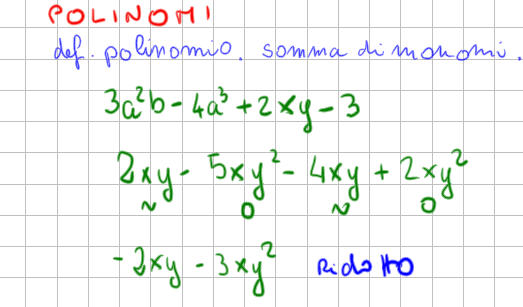 POLINOMI
def. polinomio. somma di monomi.
3a²b - 4a³ + 2xy - 3
2xy - 5xy² - 4xy + 2xy²
-2xy - 3xy² Ridotto